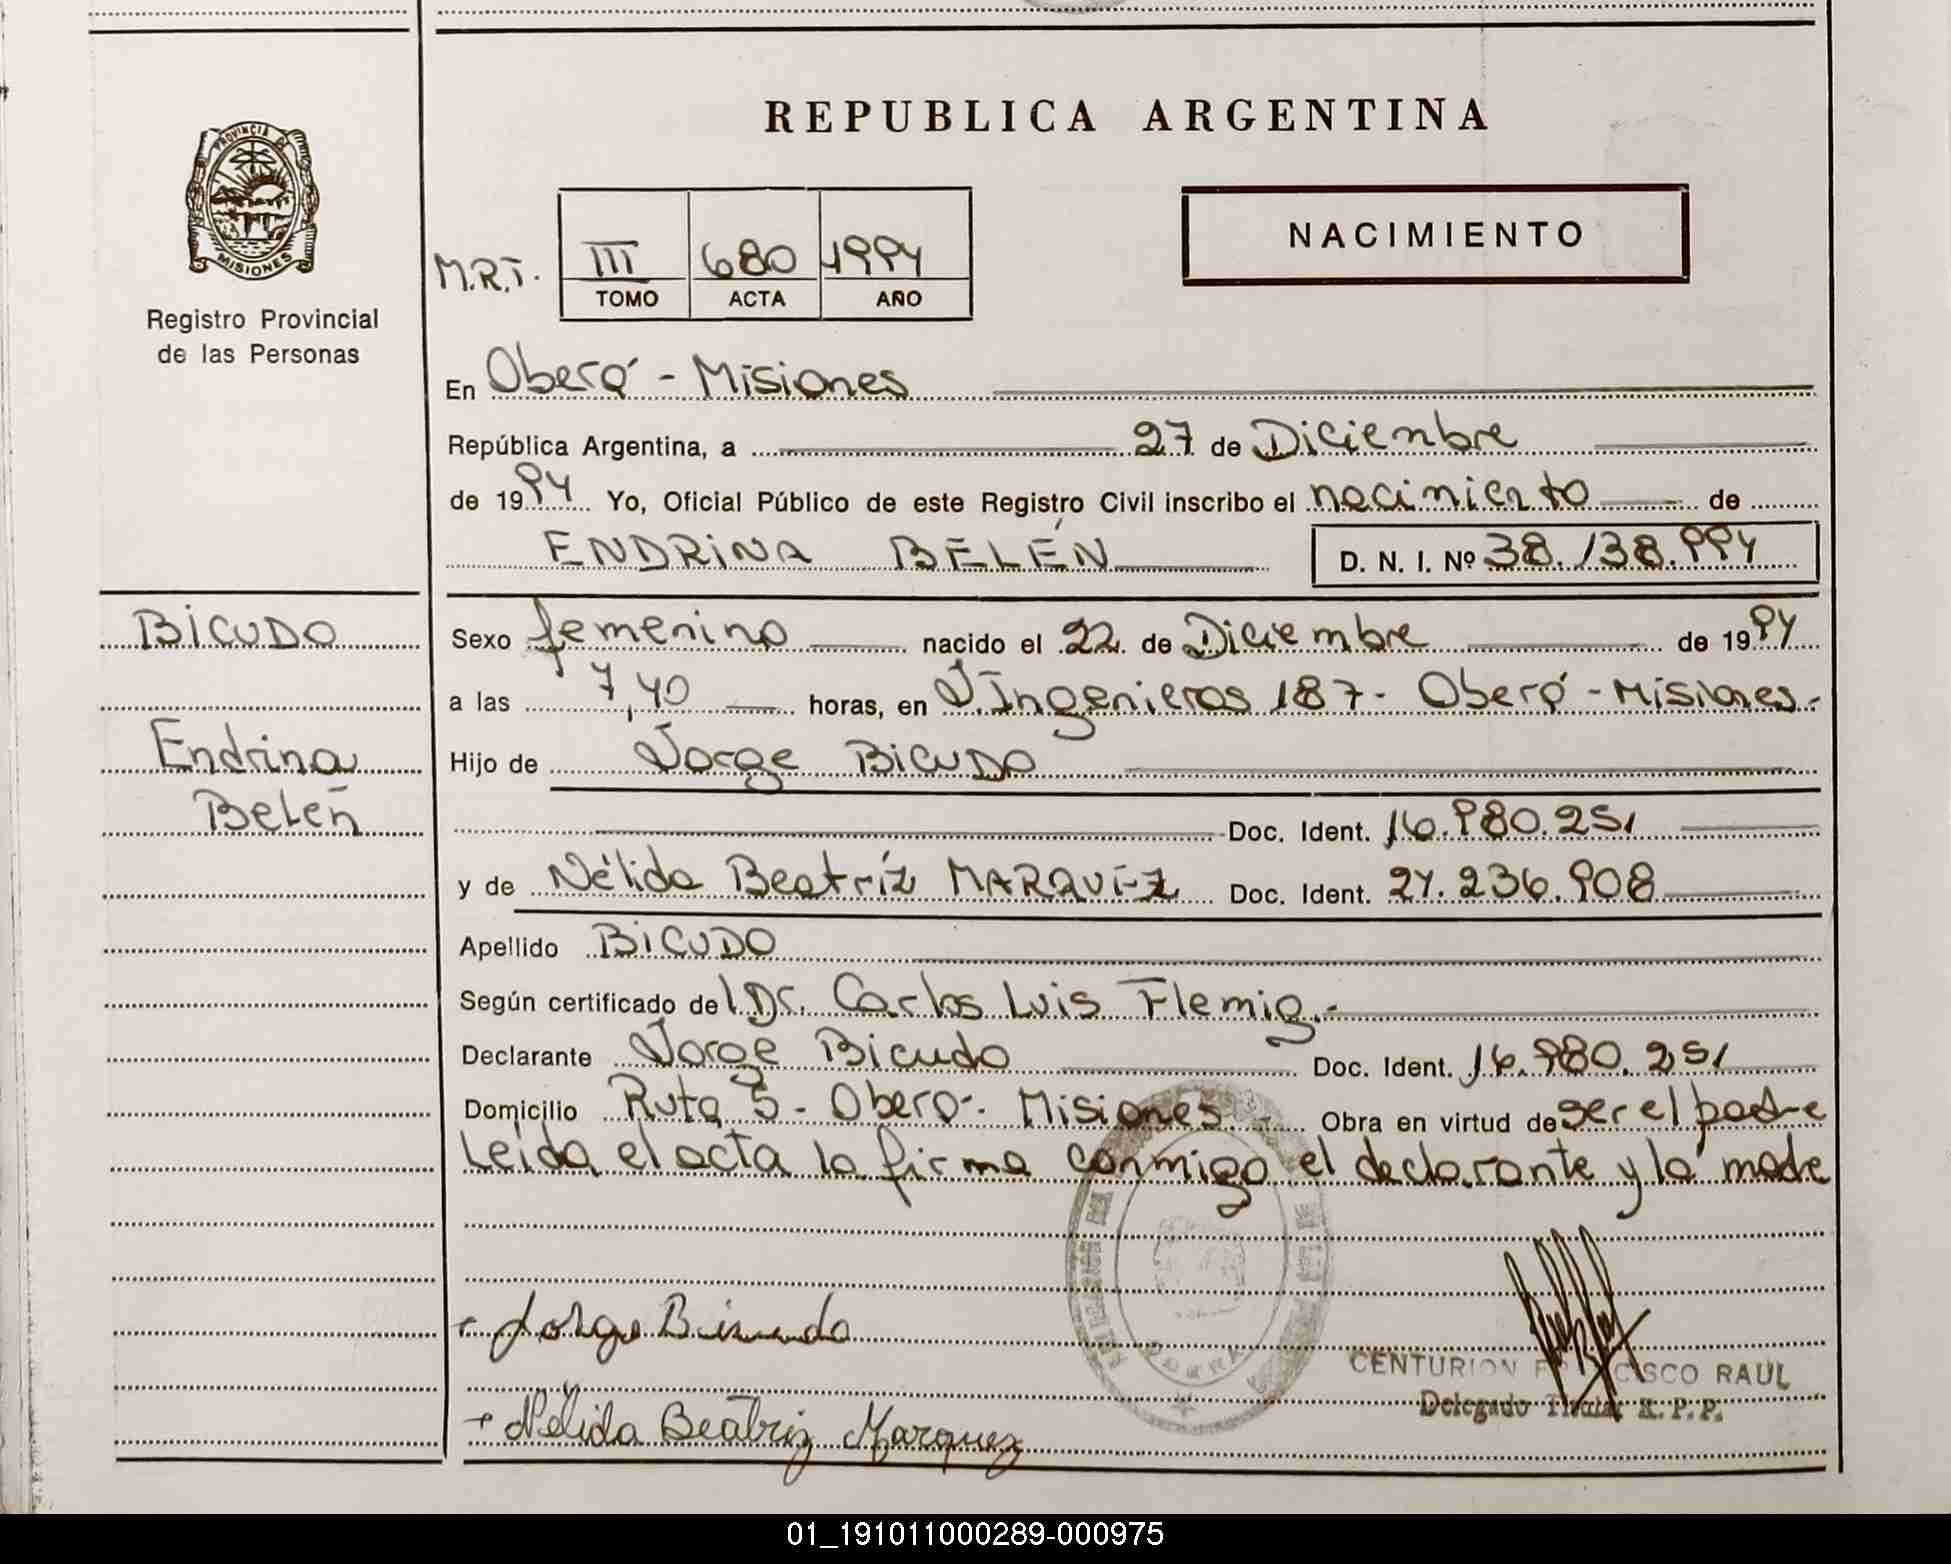 REPUBLICA ARGENTINA
PROVINCIA DE
MISIONES
Registro Provincial
de las Personas
NACIMIENTO
M.R.T. III 680 1994
TOMO ACTA AÑO
En Oberá - Misiones
República Argentina, a 27 de Diciembre
de 1994 Yo, Oficial Público de este Registro Civil inscribo el nacimiento de
ENDRINA BELÉN D. N. I. Nº 38.138.994
BICUDO
Endrina
Belén
Sexo femenino nacido el 22 de Diciembre de 1994
a las 7,40 horas, en J. Ingenieros 187 - Oberá - Misiones.
Hijo de Jorge BICUDO
Doc. Ident. 16.980.251
y de Nélida Beatríz MARQUEZ Doc. Ident. 24.236.908
Apellido BICUDO
Según certificado del Dr. Carlos Luis Flemig.-
Declarante Jorge Bicudo Doc. Ident. 16.980.251
Domicilio Ruta 5 - Oberá - Misiones Obra en virtud de ser el padre
Leída el acta la firma conmigo el declarante y la madre
Jorge Bicudo
CENTURION CISCO RAUL
Delegado Titular R. P. P.
Nélida Beatriz Marquez
01_191011000289-000975